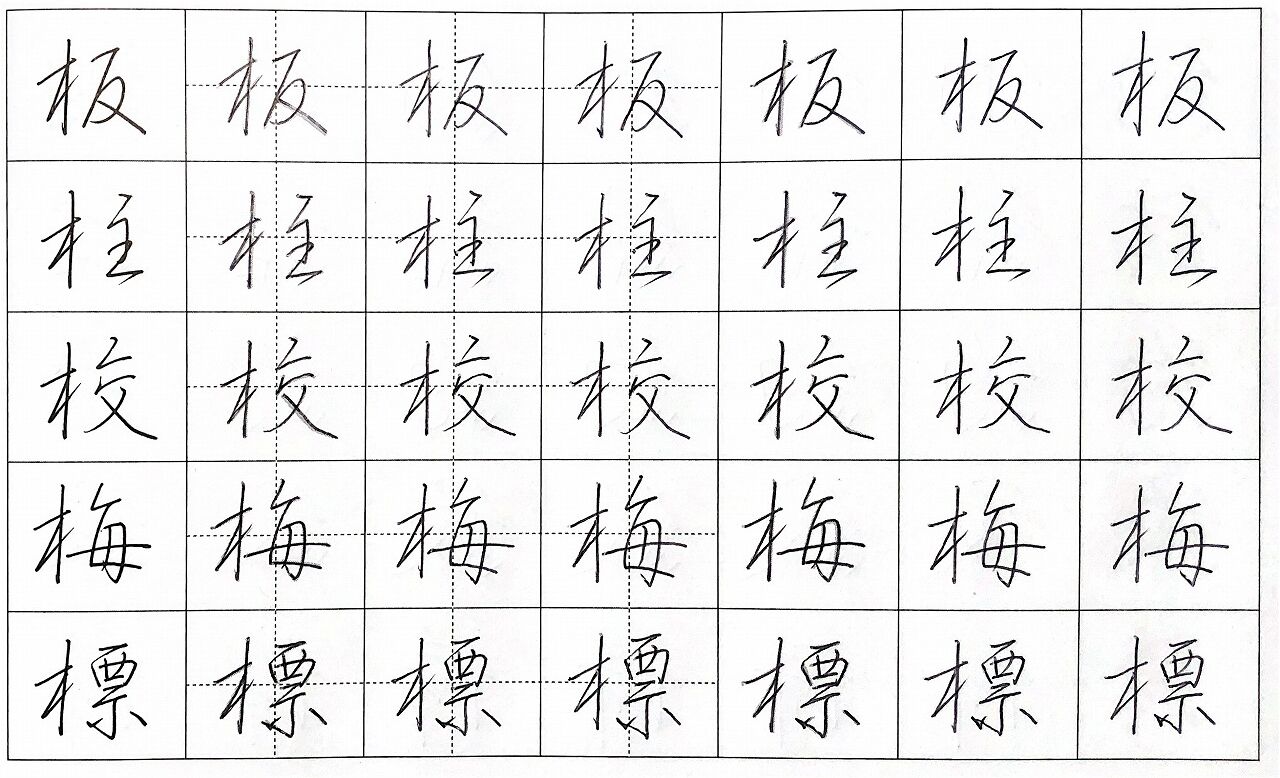 板 板 板 板 板 板 板
柱 柱 柱 柱 柱 柱 柱
校 校 校 校 校 校 校
梅 梅 梅 梅 梅 梅 梅
標 標 標 標 標 標 標